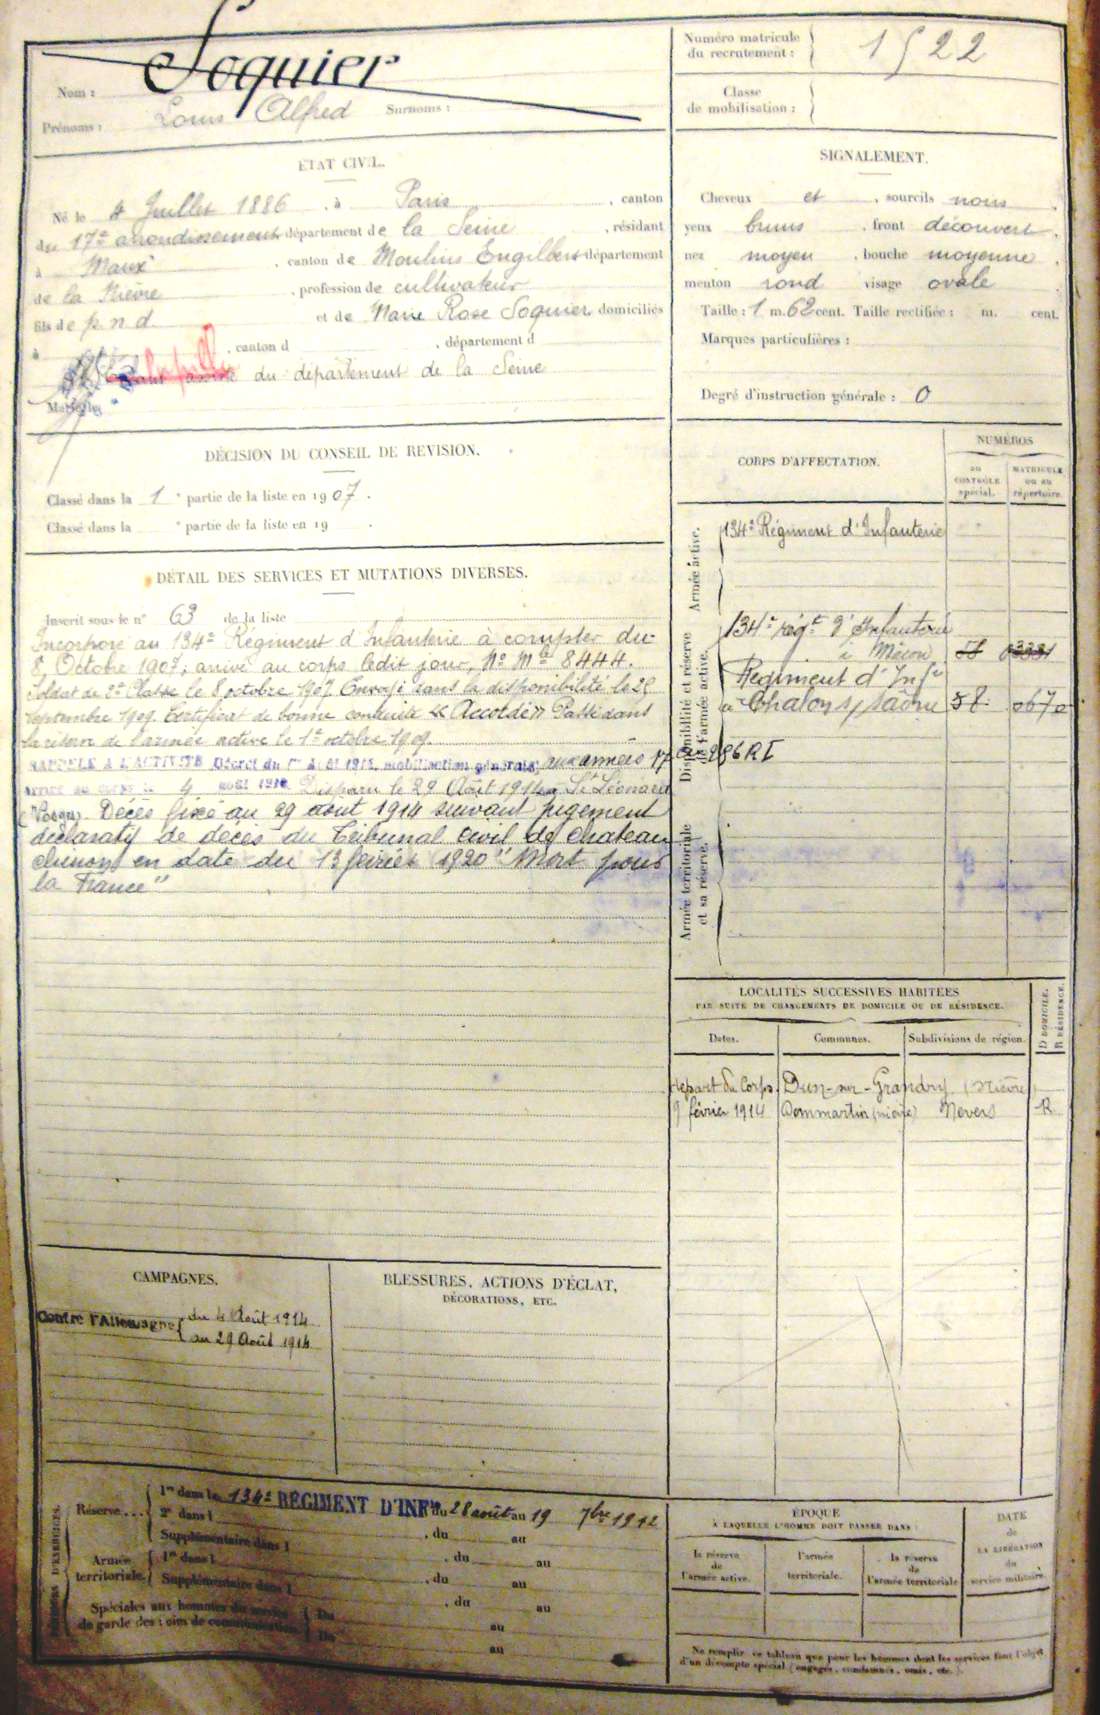 Nom : Soquier
Prénoms : Louis Alfred Surnoms :
Numéro matricule
du recrutement : 1522
Classe
de mobilisation :
ÉTAT CIVIL.
Né le 4 Juillet 1886, à Paris, canton
du 17e arrondissement département de la Seine, résidant
à Maux, canton de Moulins Engilbert département
de la Nièvre, profession de cultivateur
fils de p. n. d. et de Marie Rose Soquier domiciliés
à , canton d , département d
du département de la Seine
SIGNALEMENT.
Cheveux et , sourcils noirs,
yeux bruns, front découvert,
nez moyen, bouche moyenne,
menton rond visage ovale
Taille : 1 m. 62 cent. Taille rectifiée : m. cent.
Marques particulières :
Degré d'instruction générale : 0
DÉCISION DU CONSEIL DE REVISION.
Classé dans la 1 e partie de la liste en 1907.
Classé dans la e partie de la liste en 19 .
DÉTAIL DES SERVICES ET MUTATIONS DIVERSES.
Inscrit sous le n° 63 de la liste
Incorporé au 134e Régiment d'Infanterie à compter du
8 Octobre 1907, arrivé au corps ledit jour, No Mle 8444.
Soldat de 2e Classe le 8 octobre 1907. Envoyé dans la disponibilité le 25
Septembre 1909. Certificat de bonne conduite « Accordé » Passé dans
la réserve de l'armée active le 1er octobre 1909.
RAPPELÉ A L'ACTIVITÉ Décret du 1er Août 1914, mobilisation générale, aux armées
Arrivé au corps le 4 août 1914 Disparu le 29 Août 1914 à St Léonard
(Vosges). Décès fixé au 29 août 1914 suivant jugement
déclaratif de décès du Tribunal civil de Chateau
chinon en date du 13 février 1920 "Mort pour
la France"
CORPS D'AFFECTATION.
NUMÉROS
au
CONTRÔLE
spécial.
MATRICULE
ou au
répertoire.
Armée active.
134e Régiment d'Infanterie
Disponibilité et réserve
de l'armée active.
134e régt d'Infanterie
à Mâcon
Régiment d'Infie
à Chalon s/ Saône 58. 0670
286 RI
Armée territoriale
et sa réserve.
LOCALITÉS SUCCESSIVES HABITÉES
PAR SUITE DE CHANGEMENTS DE DOMICILE OU DE RÉSIDENCE.
Dates. Communes. Subdivisions de région. D DOMICILE. R RÉSIDENCE.
départ du Corps Dun-sur-Grandry (Nièvre)
9 février 1914 Dommartin (nièvre) Nevers R
CAMPAGNES.
Contre l'Allemagne du 4 Août 1914
au 29 Août 1914
BLESSURES, ACTIONS D'ÉCLAT,
DÉCORATIONS, ETC.
PÉRIODES D'EXERCICES.
Réserve... 1re dans le 134e RÉGIMENT D'INFie du 28 août au 19 7bre 1912
2e dans l , du au
Supplémentaire dans l , du au
Armée territoriale. 1re dans l , du au
Supplémentaire dans l , du au
Spéciales aux hommes du service
de garde des voies de communication
Du au
Du au
ÉPOQUE
À LAQUELLE L'HOMME DOIT PASSER DANS :
la réserve
de
l'armée active.
l'armée
territoriale.
la réserve
de
l'armée territoriale
DATE
de
LA LIBÉRATION
du
service militaire.
Ne remplir ce tableau que pour les hommes dont les services font l'objet
d'un décompte spécial (engagés, condamnés, omis, etc.).